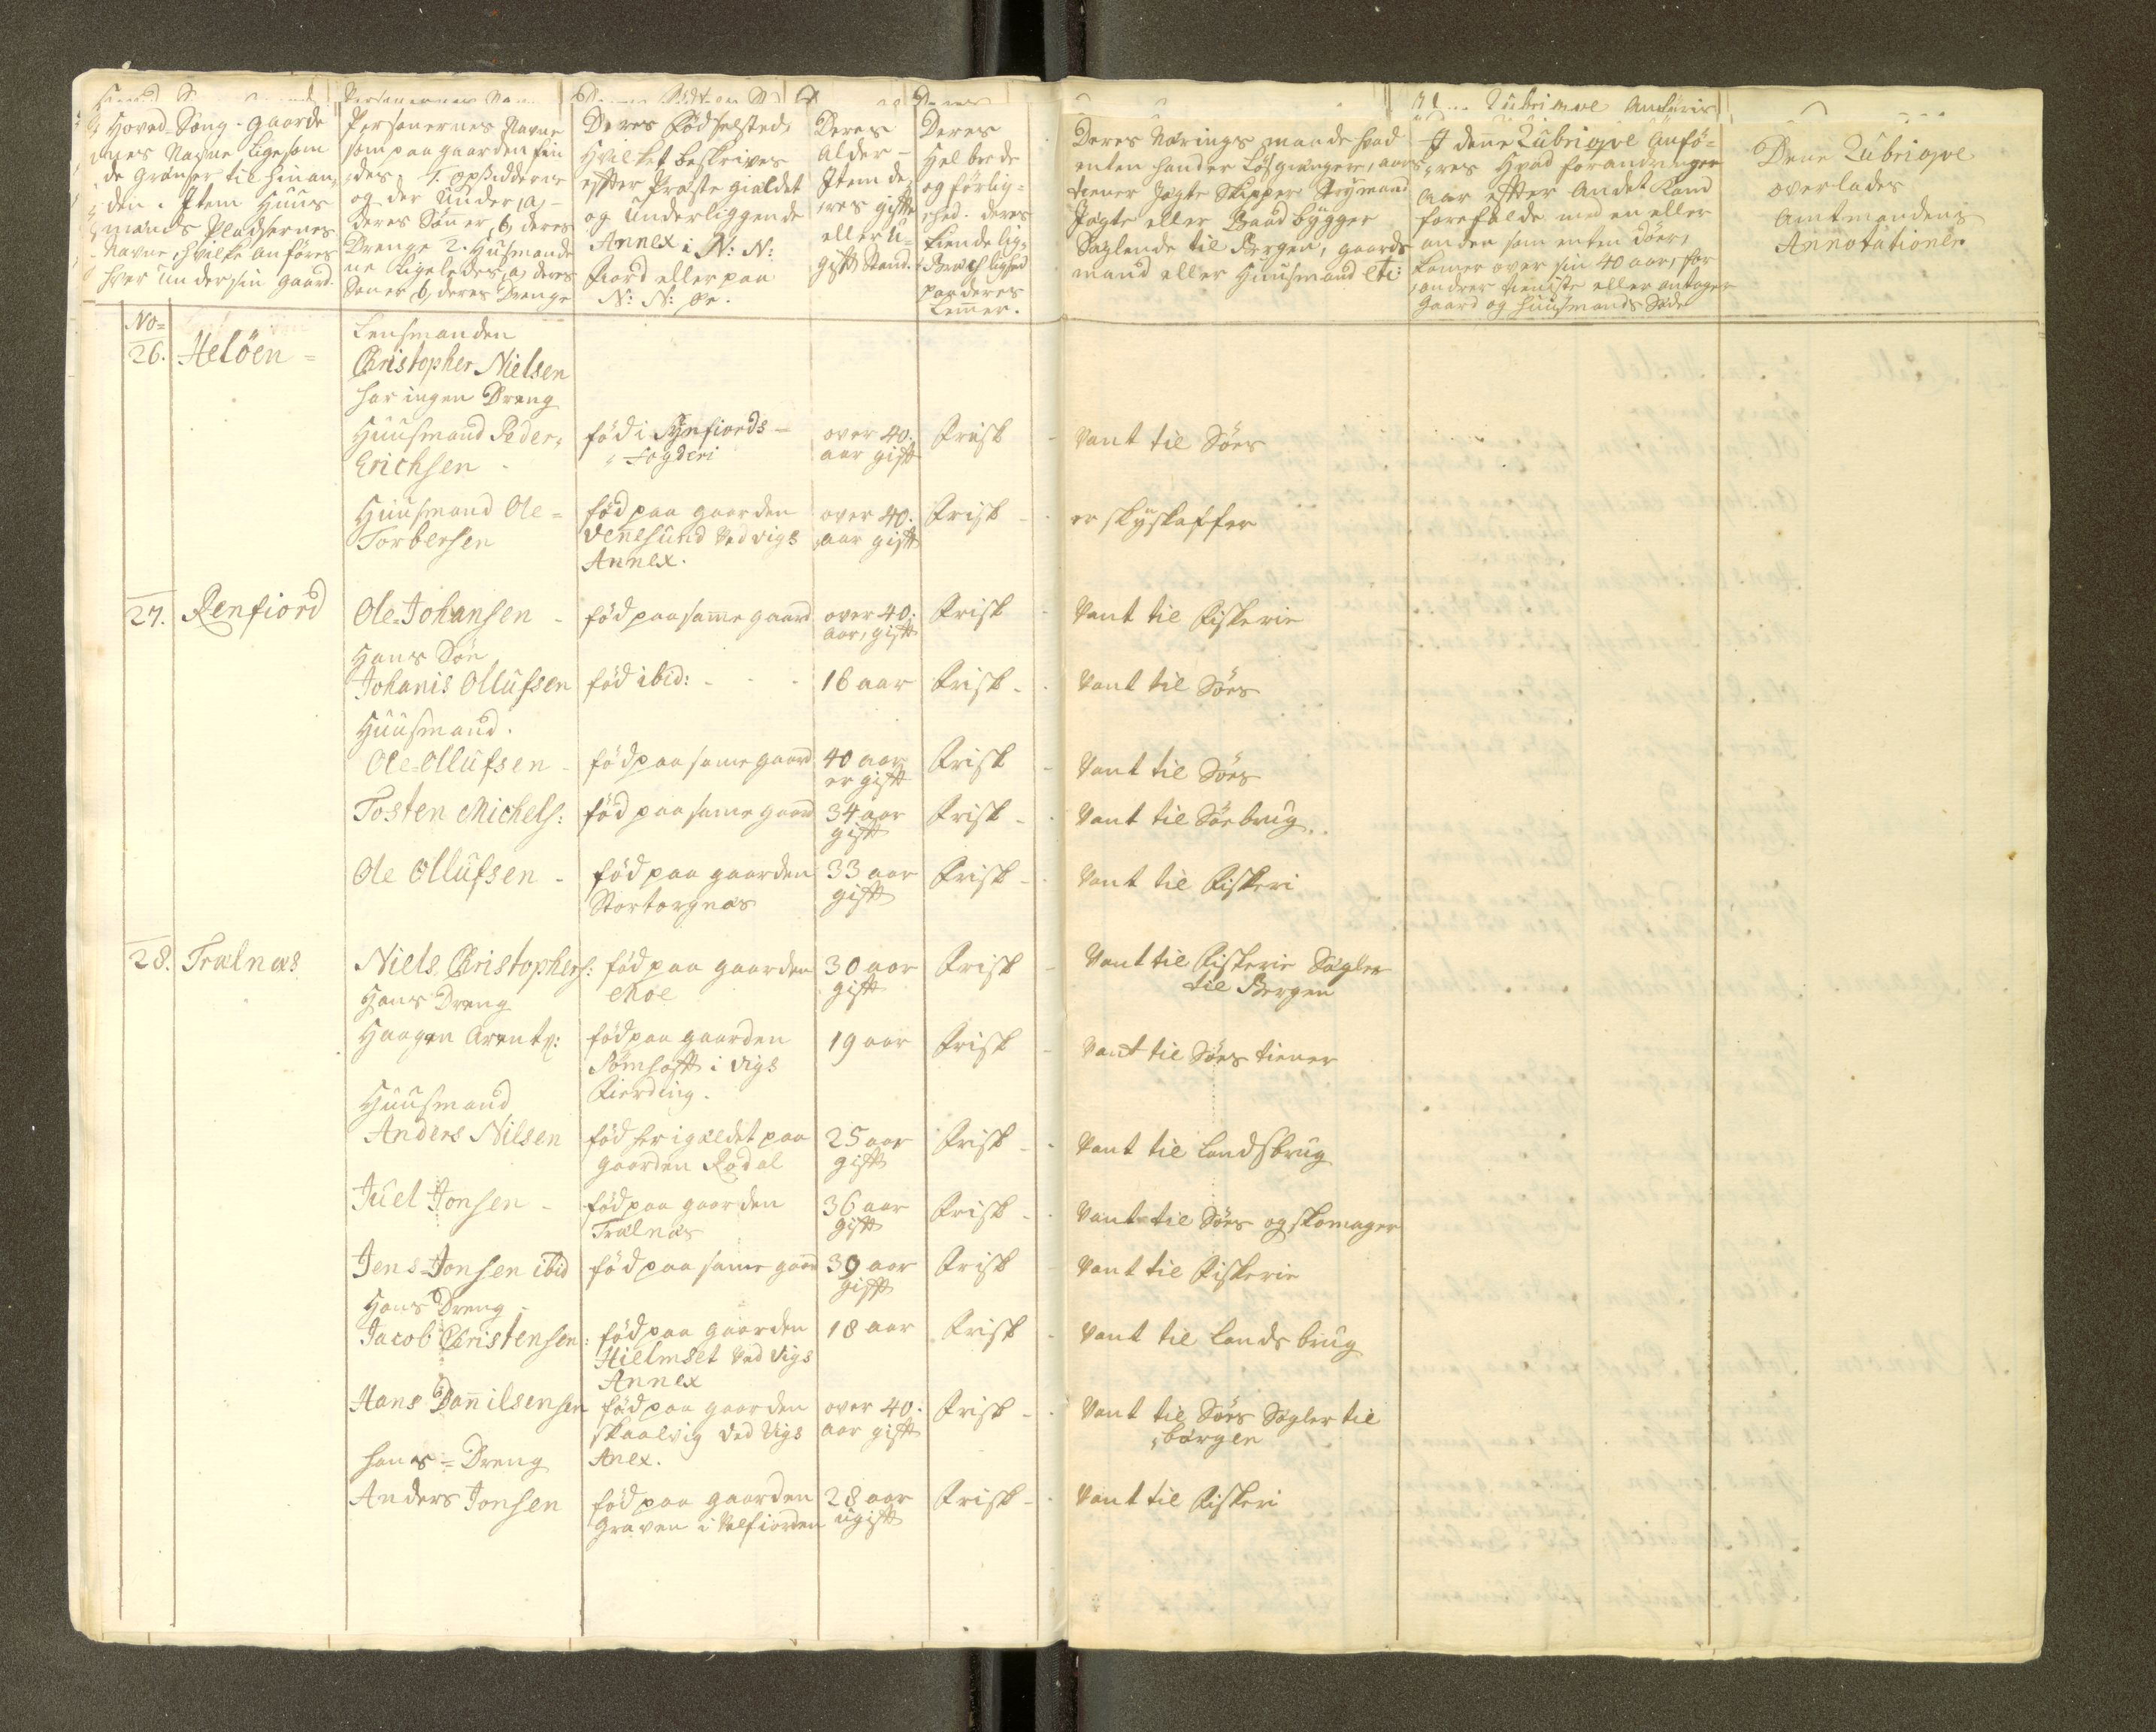 Hoved Song-Gaarde
Navne ligesom
de grænser til hinan,
den. Item Huus
mands Pladsernes
Navne, hvilke anføres
hver under sin gaard.
Personernes Navne
som paa gaarden fin
des, 1. opsidderne
og der under, a,
deres Sönner, b, deres
Drenge 2. Huusmænde
ne ligeledes, a, deres
Sönner b, deres Drenge
Deres Fødselsted,
Hvilket beskrives
efter Præste gieldet
og underliggende
Annex i N: N:
Fiord eller paa
N: N: Øe.
Deres
Alder
Item de,
res gifte
eller u=
gift Stand.
Deres
Helbrede
og förlig=
hed. deres
kiendelig,
Bræklighed
paa deres
Lemer.
Deres Nærings maade hvad
enten hand er Lösgiænger,
tiener Jagte Skipper Styrmand
Jægte eller Baad bygger
Seylende til Bergen, gaards
mand eller Huusmand etc:
I denne Rubriqve Anfö=
res Hvad forandringer
Aar efter Andet kand
forefalde med en eller
anden som enten döer,
komer over sin 40 aar, for
andrer tieniste eller antager
Gaard og huusmands Sæde
Dene Rubriqve
overlades
Amtmandens
Annotationer
No=
26. Helöen =
Lensmanden
Christopher Nielsen
har ingen Dreng
Huusmand Peder,
Erichsen
född i Synfiords
Fogderi
over 40.
aar gift
Frisk
Vant til Söes
Huusmand Ole=
Torbersen
född paa gaarden
Venesund Ved vigs
Annex.
over 40.
aar gift
Frisk
er skyskaffer
27. Renfiord
Ole=Johansen
född paa samme gaard
over 40.
aar, gift
Frisk
Vant til Fiskerie
Hans Sön
Johanis Ollufsen
född ibid:
16 aar
Frisk
Vant til Söes
Huusmand.
Ole=Ollufsen
född paa same gaard
40 aar
er gift
Frisk
Vant til Söes
Tosten Michels:
född paa same gaard
34 aar
gift
Frisk
Vant til Söebrug
Ole Ollufsen
född paa gaarden
Stortorgnæs
33 aar
gift
Frisk
Vant til Fiskeri
28. Trælnæs
Niels Christophers:
född paa gaarden
Moe
30 aar
gift
Frisk
Vant til Fiskerie Seyler
til Bergen
Hans Dreng
Haagen Arents:
född paa gaarden
Sömhoft i vigs
Fierding.
19 aar
Frisk
Vant til Söes tiener
Huusmand
Anders Nilsen
född her i gieldet paa
gaarden Rødal
25 aar
gift
Frisk
Vant til Landsbrug
Juel Jonsen
född paa gaarden
Trælnæs
36 aar
gift
Frisk
Vant til Söes og skomager
Jens=Jonsen ibid
född paa same gaard
39 aar
gift
Frisk
Vant til Fiskerie
Hans Dreng
Jacob Christensen:
född paa gaarden
Hielmset Ved Vigs
Annex
18 aar
Frisk
Vant til Lands brug
Hans Danilsensen
född paa gaarden
skaalvig Ved Vigs
Anex.
over 40.
aar gift
Frisk
Vant til Söes Seyler til
börgen
hans=Dreng
Anders Jonsen
född paa gaarden
Graven i Velfiorden
28 aar
ugift
Frisk
Vant til Fiskeri